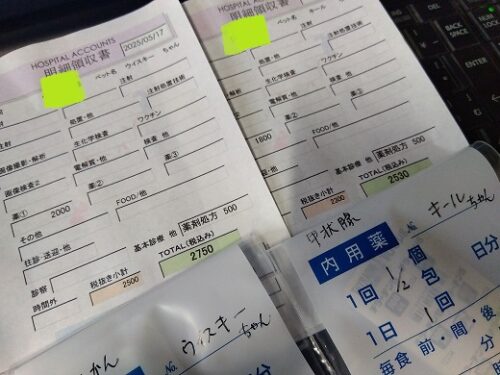 HOSPITAL ACCOUNTS
明細領収書
2025/05/17
ペット名 ウイスキー ちゃん
処置・他
注射
注射処置技術
生化学検査
ワクチン
画像撮影・解析
電解質・他
検査 他
画像検査2
薬②
薬③
薬① 2000
FOOD/他
その他
基本診療 他
薬剤処方 500
往診・送迎・他
TOTAL(税込み)
診察
税抜き小計
2750
時間外
2500
HOSPITAL ACCOUNTS
明細領収書
ペット名 キール ちゃん
処置・他
注射
注射処置技術
生化学検査
ワクチン
電解質・他
検査 他
薬②
薬③
1800
FOOD/他
基本診療 他
薬剤処方 500
TOTAL(税込み)
税抜き小計
2530
2300
かん
No.
ウイスキー
ちゃん
甲状腺
No.
キール
ちゃん
内用薬
日分
1回 1/2 個 包
1日 1 回
毎食 前・間・後
分